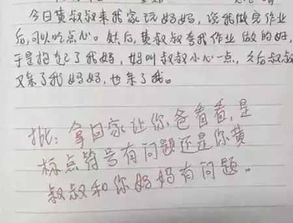 今日黄叔叔来我家说妈妈,说我做完作业
后,可以吃点心。然后,黄叔叔夸我作业做的好,
于是抱起了我妈,妈叫叔叔小心一点,之后叔叔
又亲了我妈妈,也亲了我。
批:拿回家让你爸看看,是
标点符号有问题还是你黄
叔叔和你妈妈有问题。